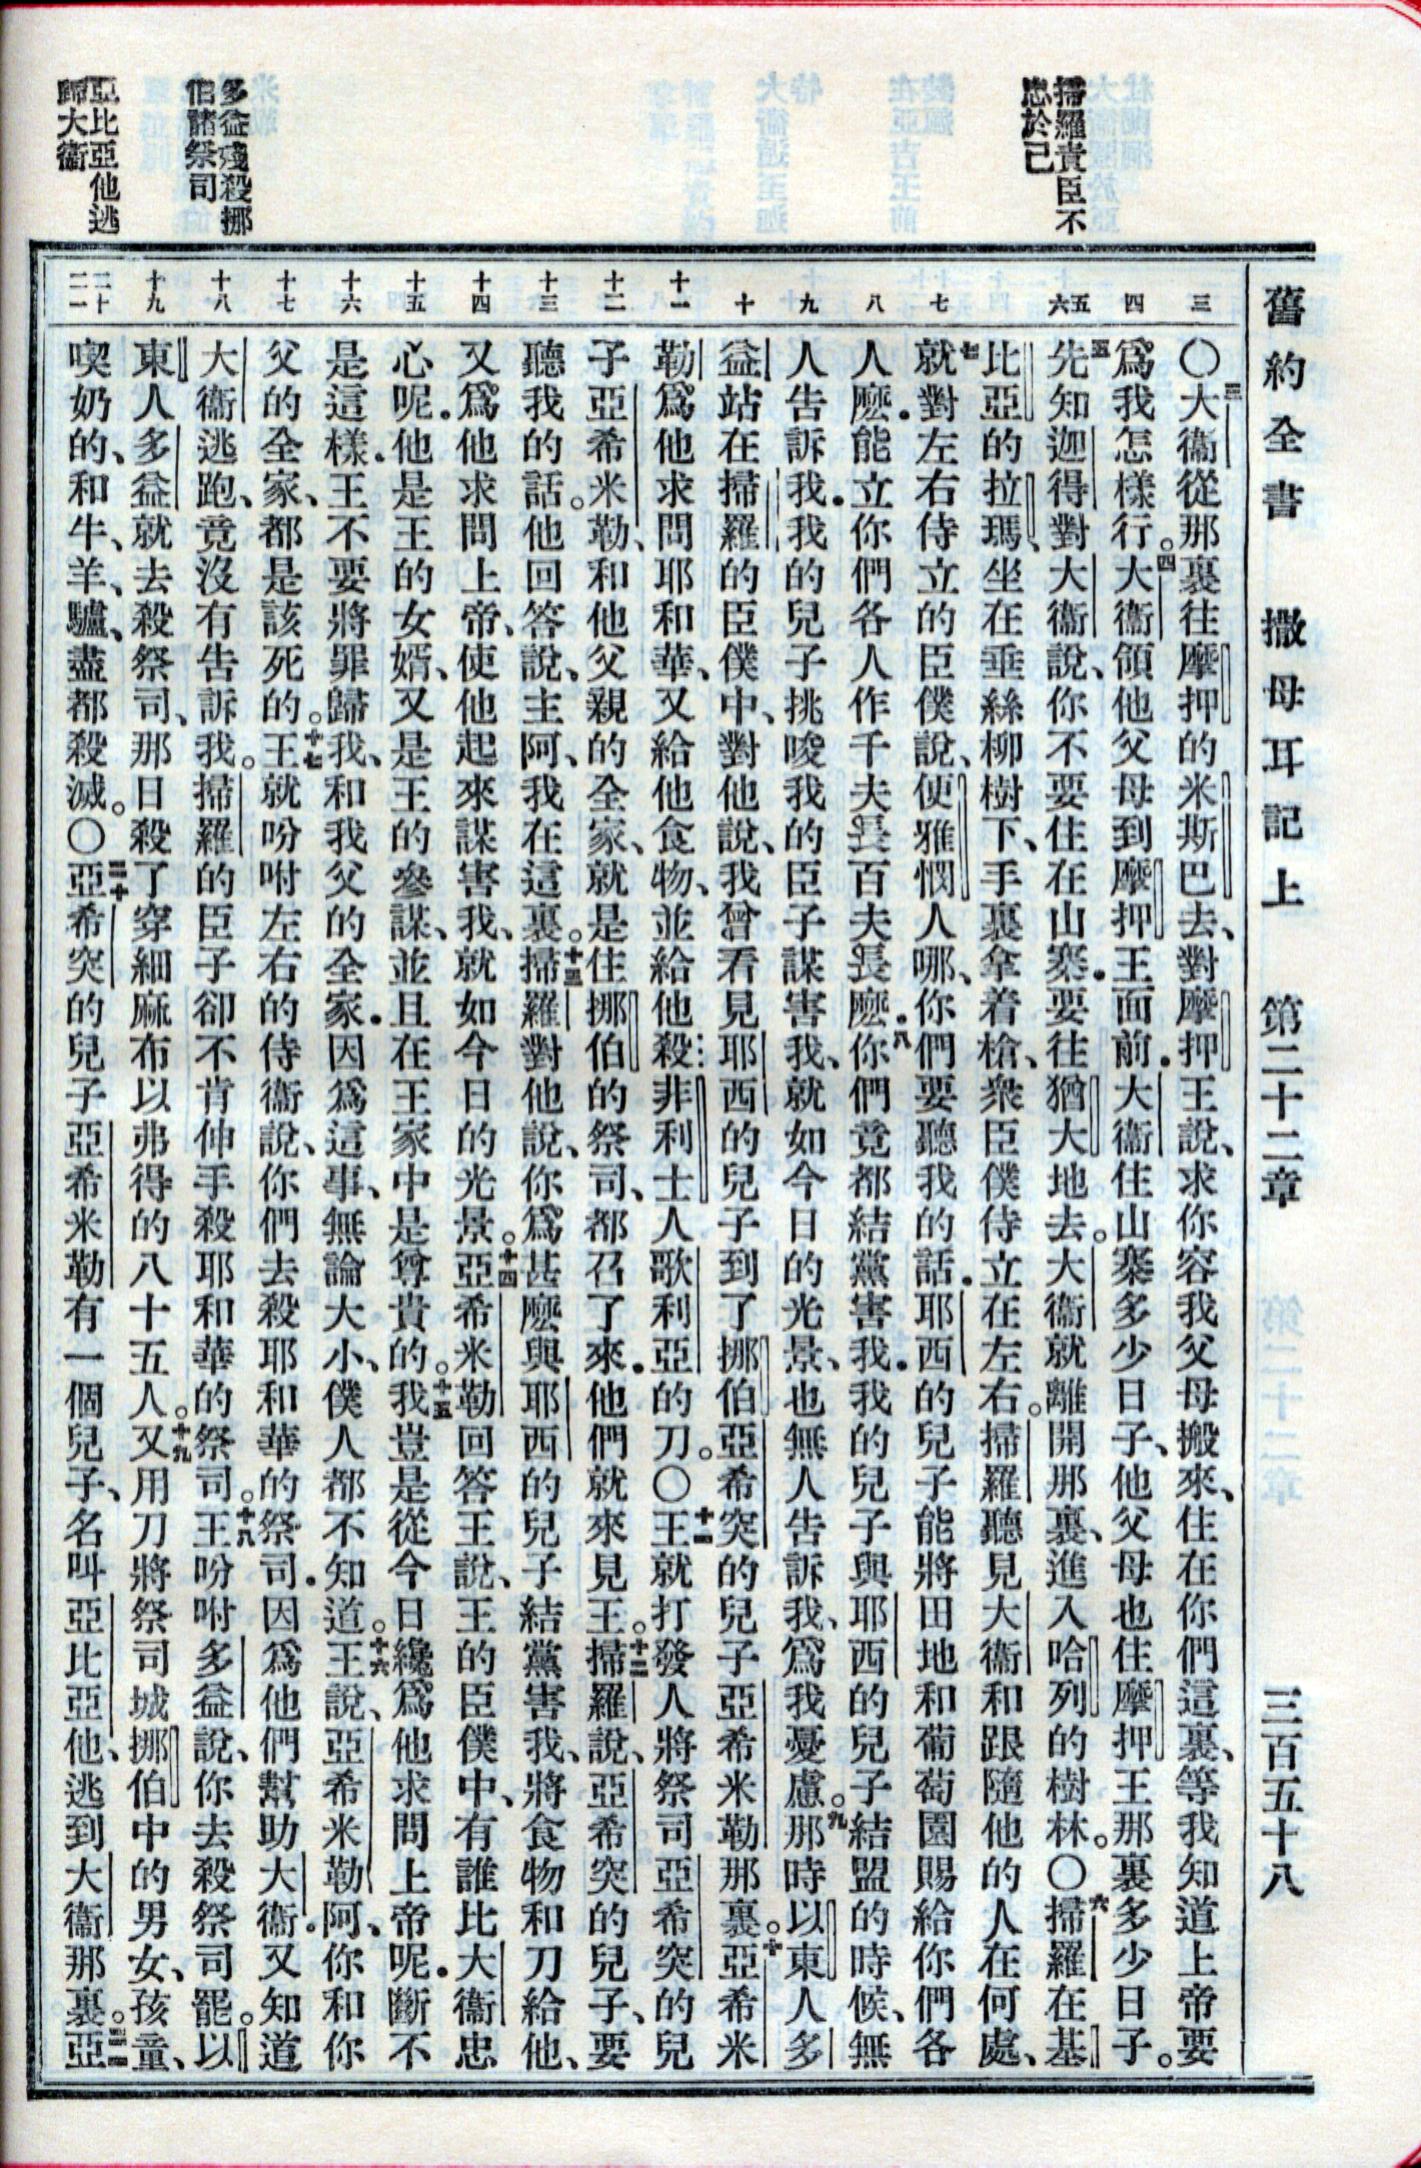 舊約全書　撒母耳記上　第二十二章　三百五十八
掃羅責臣不
忠於己
多益殘殺挪
伯諸祭司
亞比亞他逃
歸大衞
三
四
五
六
七
八
九
十
十一
十二
十三
十四
十五
十六
十七
十八
十九
二十
二一
〇三大衞從那裏往摩押的米斯巴去、對摩押王說、求你容我父母搬來、住在你們這裏、等我知道上帝要
爲我怎樣行。四大衞領他父母到摩押王面前．大衞住山寨多少日子、他父母也住摩押王那裏多少日子。
五先知迦得對大衞說、你不要住在山寨．要往猶大地去。大衞就離開那裏、進入哈列的樹林。〇六掃羅在基
比亞的拉瑪、坐在垂絲柳樹下、手裏拿着槍、衆臣僕侍立在左右。掃羅聽見大衞和跟隨他的人在何處、
七就對左右侍立的臣僕說、便雅憫人哪、你們要聽我的話．耶西的兒子能將田地和葡萄園賜給你們各
人麽．能立你們各人作千夫長百夫長麽．八你們竟都結黨害我．我的兒子與耶西的兒子結盟的時候、無
人告訴我．我的兒子挑唆我的臣子謀害我、就如今日的光景、也無人告訴我、爲我憂慮。九那時以東人多
益站在掃羅的臣僕中、對他說、我曾看見耶西的兒子到了挪伯亞希突的兒子亞希米勒那裏。十亞希米
勒爲他求問耶和華、又給他食物、並給他殺非利士人歌利亞的刀。〇十一王就打發人將祭司亞希突的兒
子亞希米勒、和他父親的全家、就是住挪伯的祭司、都召了來．他們就來見王。十二掃羅說、亞希突的兒子、要
聽我的話。他回答說、主阿、我在這裏。十三掃羅對他說、你爲甚麽與耶西的兒子結黨害我、將食物和刀給他、
又爲他求問上帝、使他起來謀害我、就如今日的光景。十四亞希米勒回答王說、王的臣僕中、有誰比大衞忠
心呢．他是王的女婿、又是王的參謀、並且在王家中是尊貴的。十五我豈是從今日纔爲他求問上帝呢．斷不
是這樣．王不要將罪歸我、和我父的全家．因爲這事、無論大小、僕人都不知道。十六王說、亞希米勒阿、你和你
父的全家、都是該死的。十七王就吩咐左右的侍衞說、你們去殺耶和華的祭司．因爲他們幫助大衞．又知道
大衞逃跑、竟沒有告訴我。掃羅的臣子卻不肯伸手殺耶和華的祭司。十八王吩咐多益說、你去殺祭司罷。以
東人多益就去殺祭司、那日殺了穿細麻布以弗得的八十五人。十九又用刀將祭司城挪伯中的男女、孩童、
喫奶的、和牛、羊、驢、盡都殺滅。〇二十亞希突的兒子亞希米勒有一個兒子、名叫亞比亞他、逃到大衞那裏。二一亞